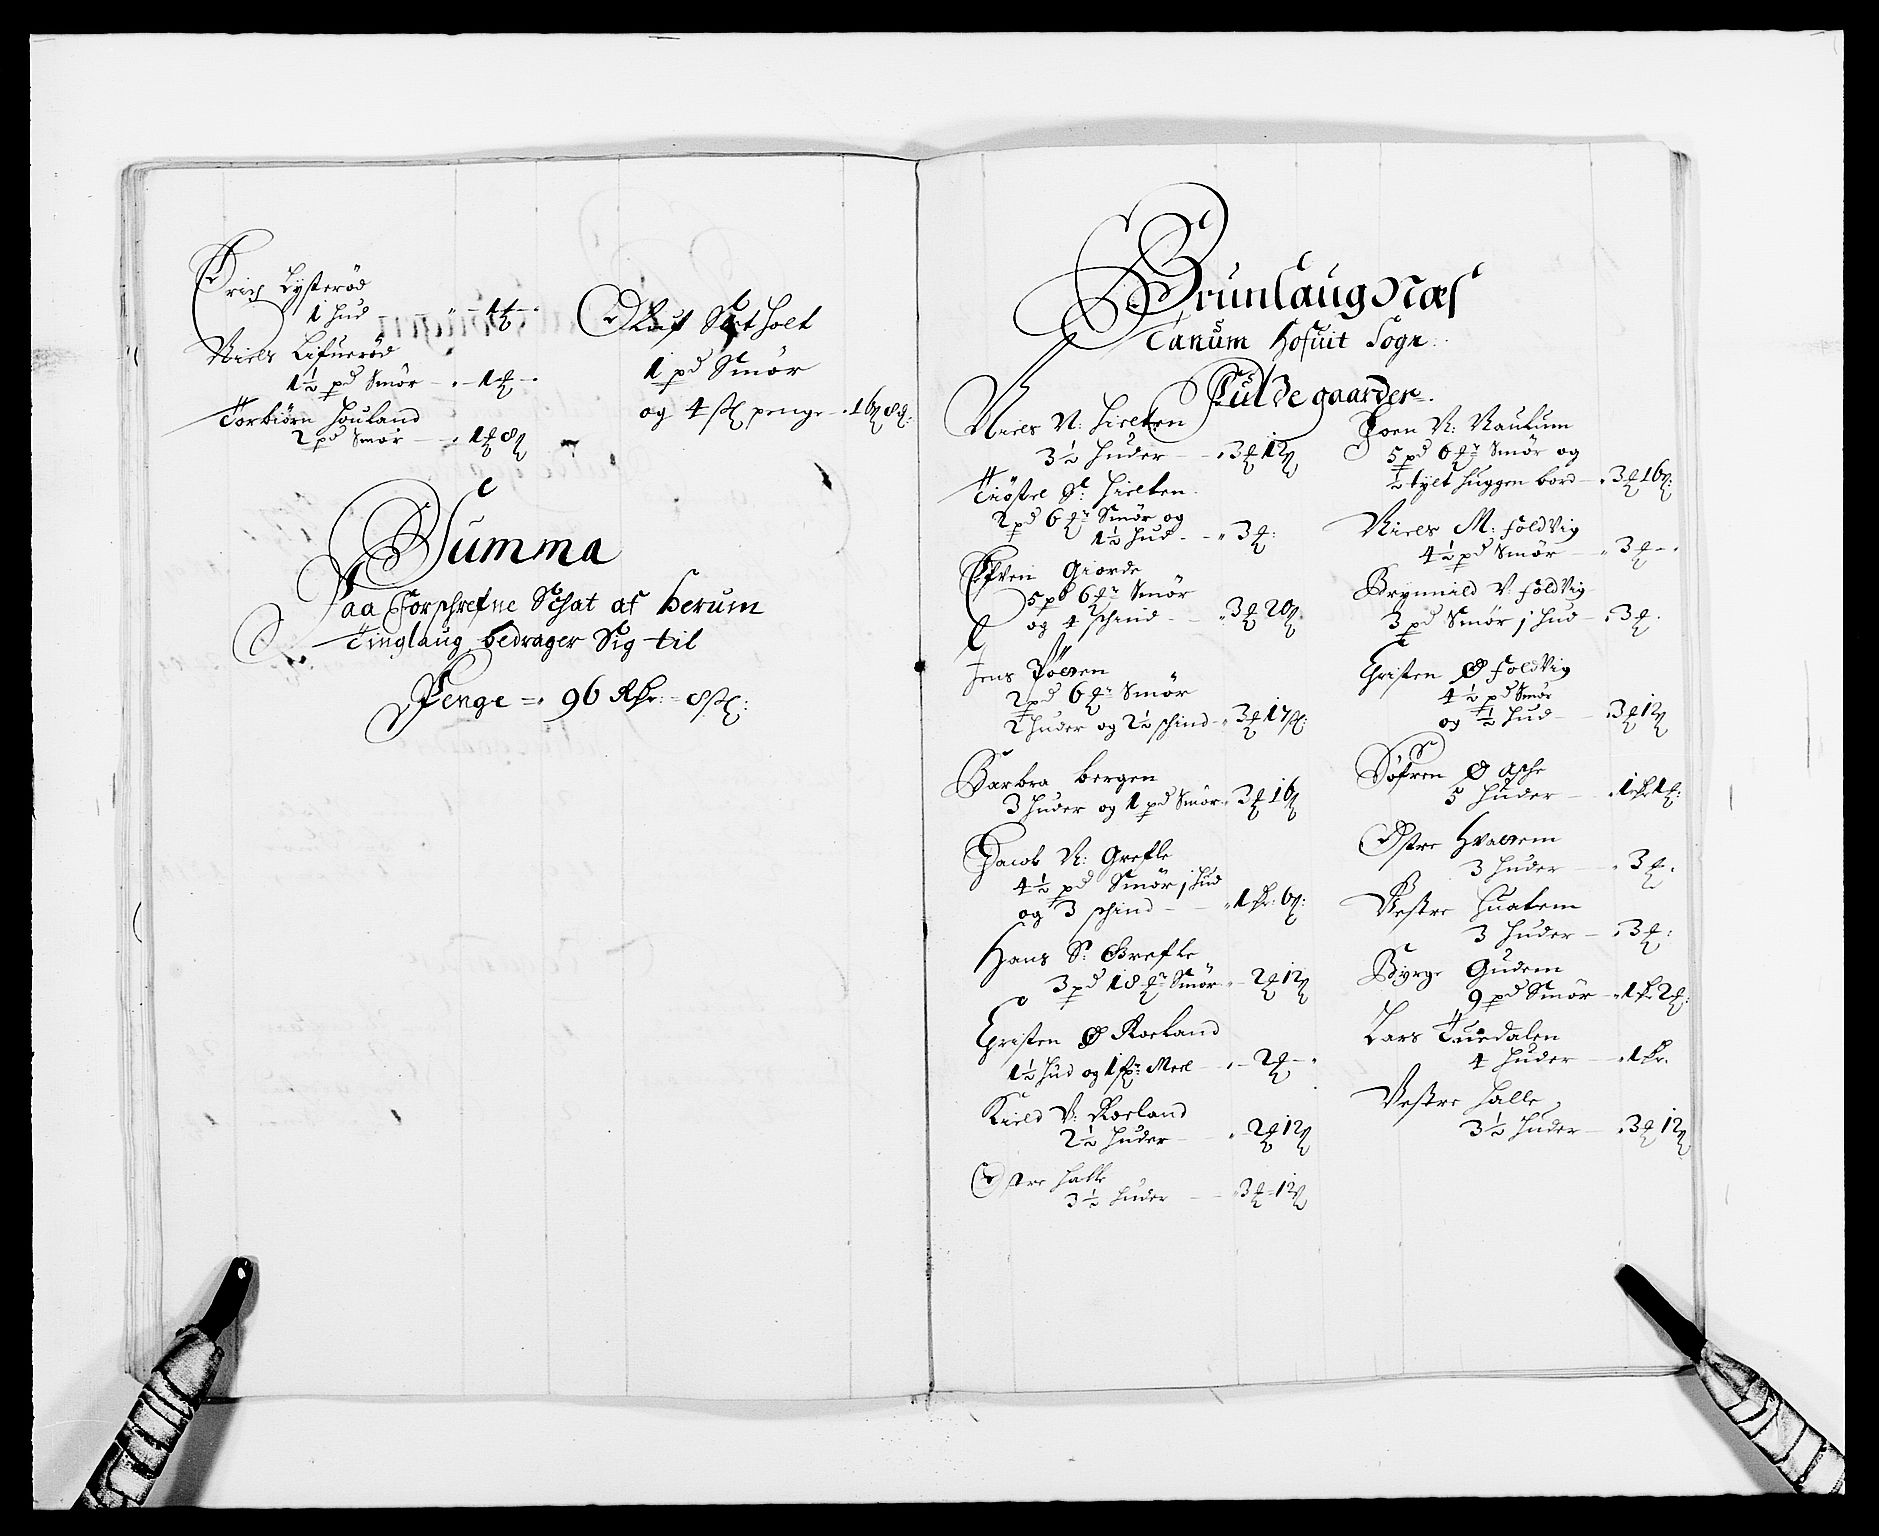 Erich Lysterød
1 hud - " - 1 ʠ - "
Niels Lifuerød
1½ pd Smør - " - 1 ʠ - "
Torbiörn Houland
2 pd Smør - " - 1 ʠ 8 ß
Oluf Holt
1 pd Smør
og 4 ß penge - " 16 ß 8 ₰:
Summa
Paa Forschrefne Schat af Herum
Tinglaug bedrager Sig til
Penge - " 96 Rdr: - 8 ß:
Brunlaugnæs
Tanum Hofuit Sogn:
Fulde gaarder.
Niels N: Hielten
3½ Huder - " 3 ʠ 12 ß
Tiøstel S: Hielten
2 pd 6 ʠr Smør og
1½ hud - " 3 ʠ:
Efven Giorde
5 pd 6 ʠr Smør
og 4 schind - " 3 ʠ 20 ß:
Jens
2 pd 6 ʠr Smør
2 huder og 2½ schind - " 3 ʠ 17 ß:
Barbra Bergen
3 huder og 1 pd Smør - " 3 ʠ 16 ß
Jacob N: Grefle
4½ pd Smør j hud
og 3 schind - " 1 dr: 6 ß:
Hans S: Grefle
3 pd 18 ʠr Smør - " 2 ʠ 12 ß
Christen Ø Roeland
1½ hud og 1 ß: Meel - " - 2 ʠ - "
Kield V: Roeland
2½ huder - " - 2 ʠ 12 ß
Østre Halle
3½ huder - " 3 ʠ - 12 ß
Joen N: Naulum
5 pd 6 ʠr Smør og
½ tylt huggen bord - " 3 ʠ 16 ß:
Niels M: Foldvig
4½ pd Smør - " 3 ʠ - "
Brynnild V: Foldvig
3 pd Smør j hud - " 3 ʠ.
Christen Ø Foldvig
4½ pd Smør
og ½ hud - " 3 ʠ 12 ß
Søfren Ø Aske
5 huder - " 1 dr 1 ʠ:
Østre
3 huder - " 3 ʠ.
Vestre
3 huder - " 3 ʠ:
Byrge Gudem
9 pd Smør - " 1 dr 2 ʠ:
Lars Tuedalen
4 huder - " 1 dr.
Vestre Halle
3½ huder - " 3 ʠ 12 ß